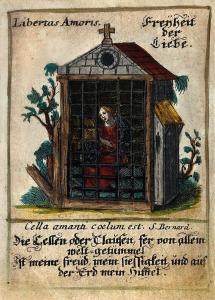 Libertas Amoris.
Freyheit
der
Liebe.
Cella amanti coelum est. S. Bernard.
Die Cellen oder Clausen, fer von allem
welt-getümmel
Ist meine freud, mein süssigkeit, und auf
der Erd mein Himel.